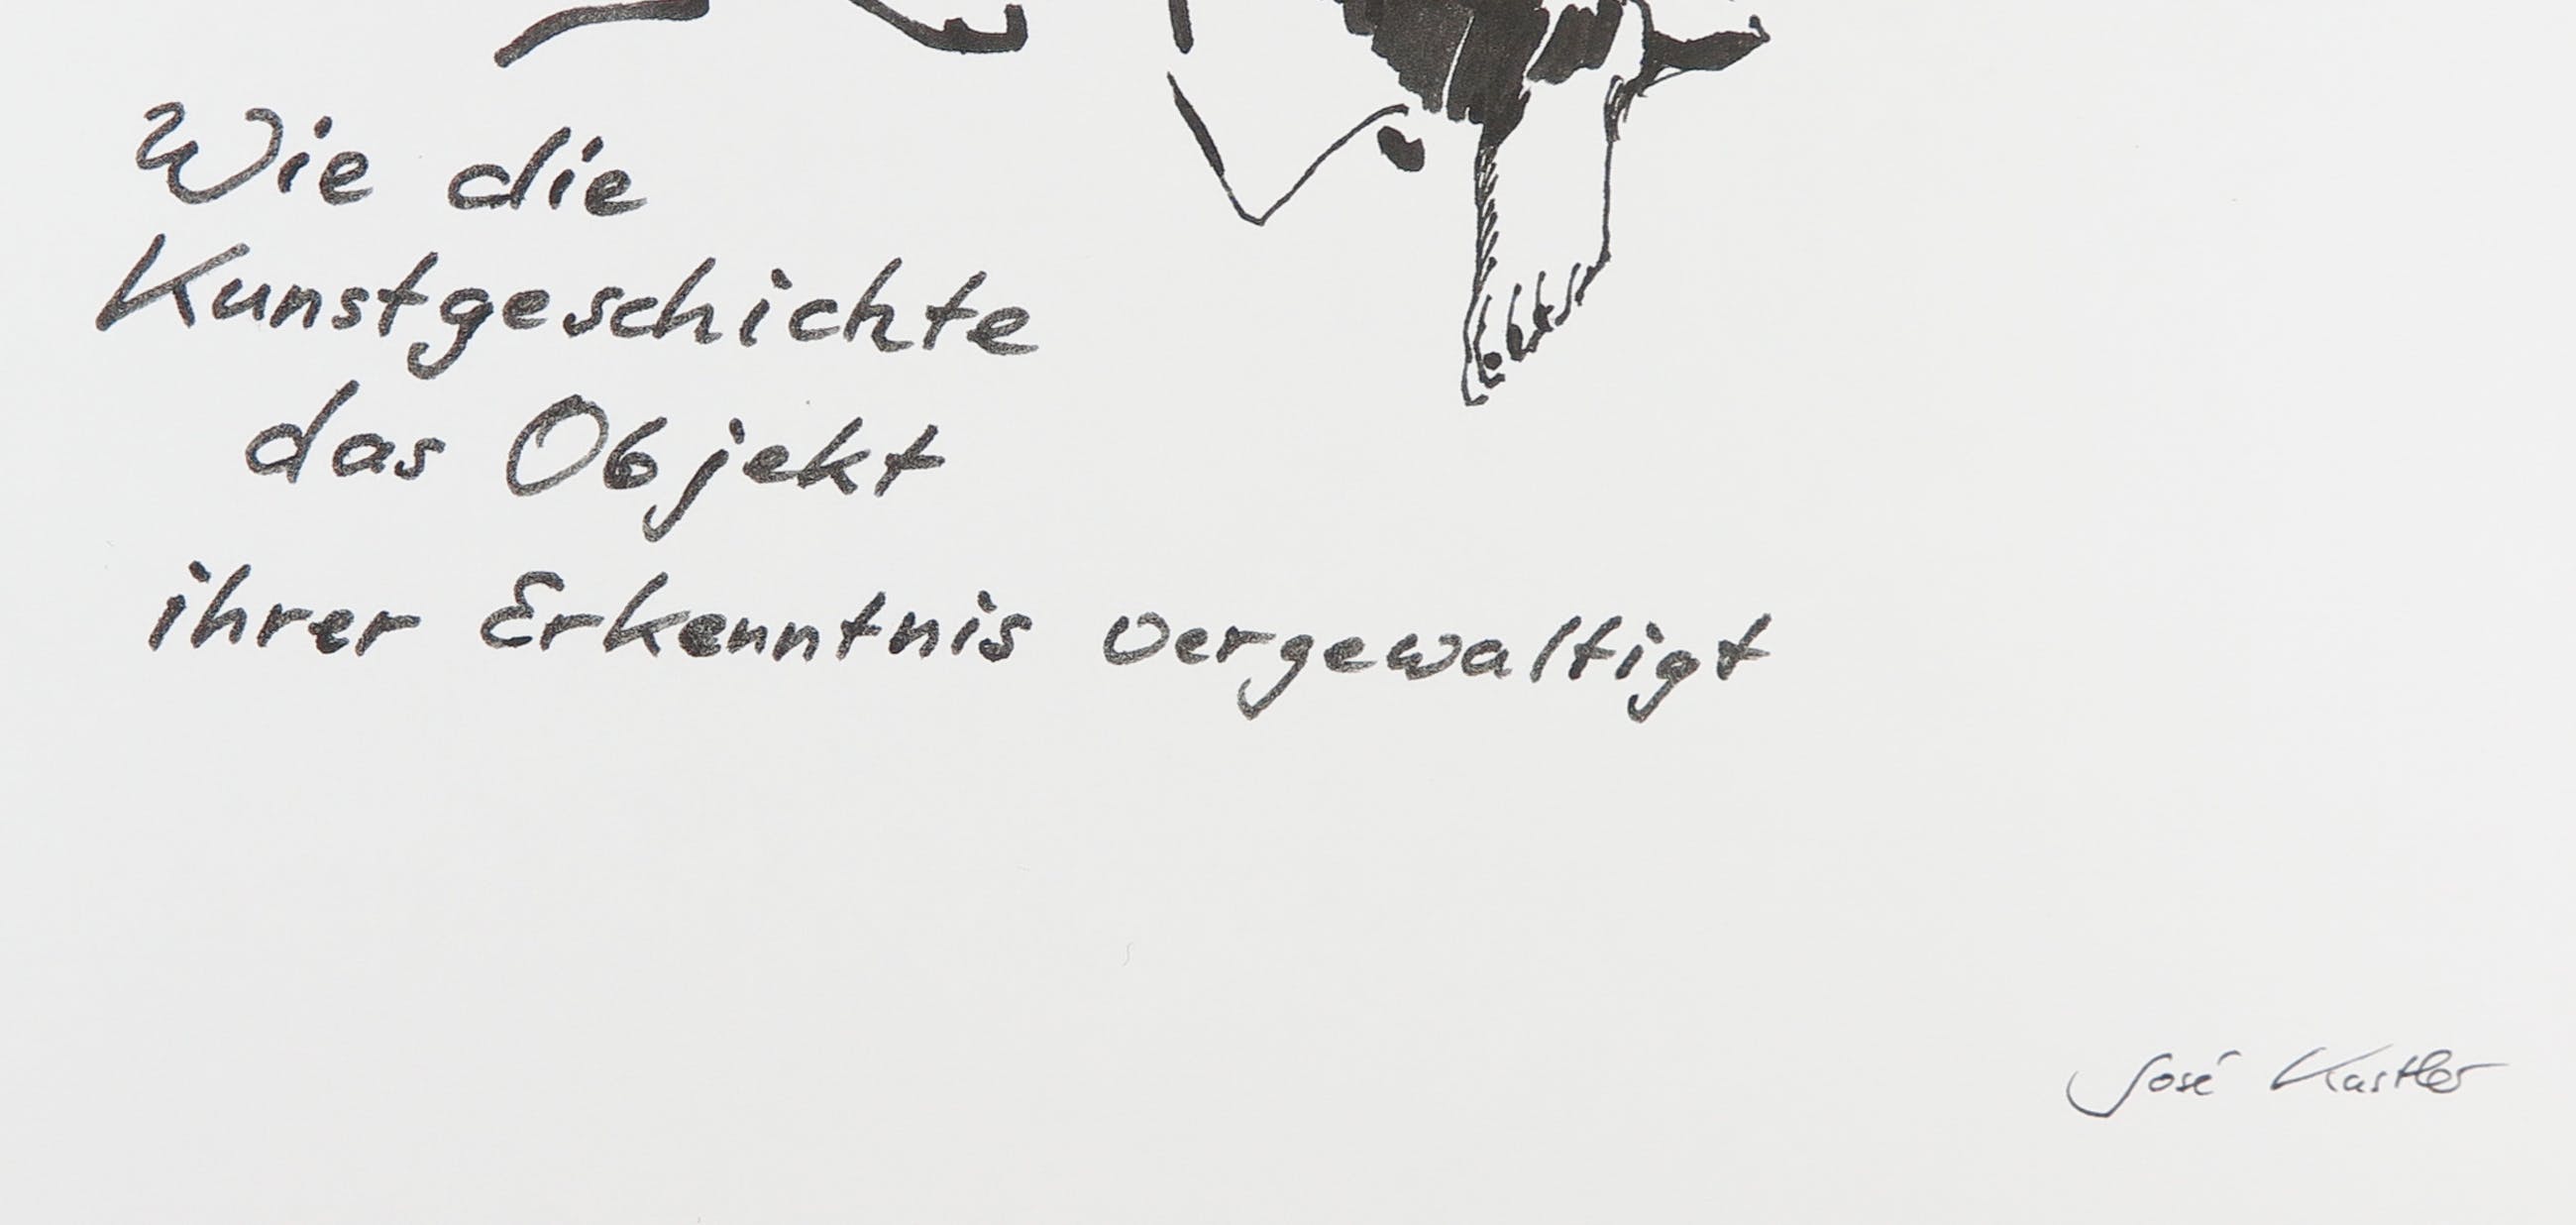 Wie die
Kunstgeschichte
das Objekt
ihrer Erkenntnis vergewaltigt
José Kastler